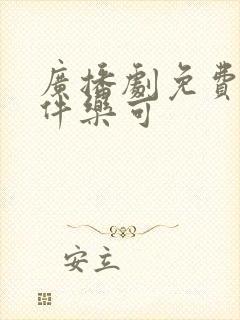 廣播劇免費
伴樂可
安立